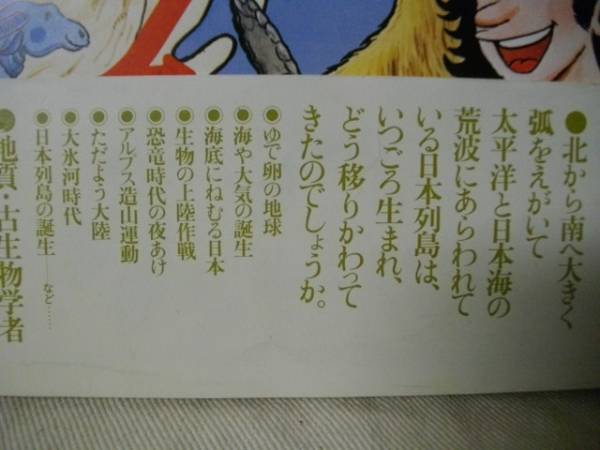 ●北から南へ大きく
弧をえがいて
太平洋と日本海の
荒波にあらわれて
いる日本列島は、
いつごろ生まれ、
どう移りかわって
きたのでしょうか。
◉ゆで卵の地球
◉海や大気の誕生
◉海底にねむる日本
◉生物の上陸作戦
◉恐竜時代の夜あけ
◉アルプス造山運動
◉ただよう大陸
◉大氷河時代
◉日本列島の誕生——など……
●地質・古生物学者